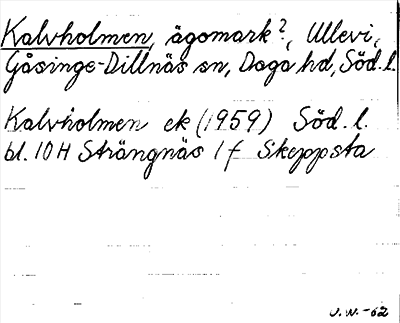 Kalvholmen, ägomark?, Ullevi,
Gåsinge-Dillnäs sn, Daga hd, Söd. l.
Kalvholmen ek (1959) Söd. l.
bl. 10H Strängnäs 1f Skeppsta
U.W.-62